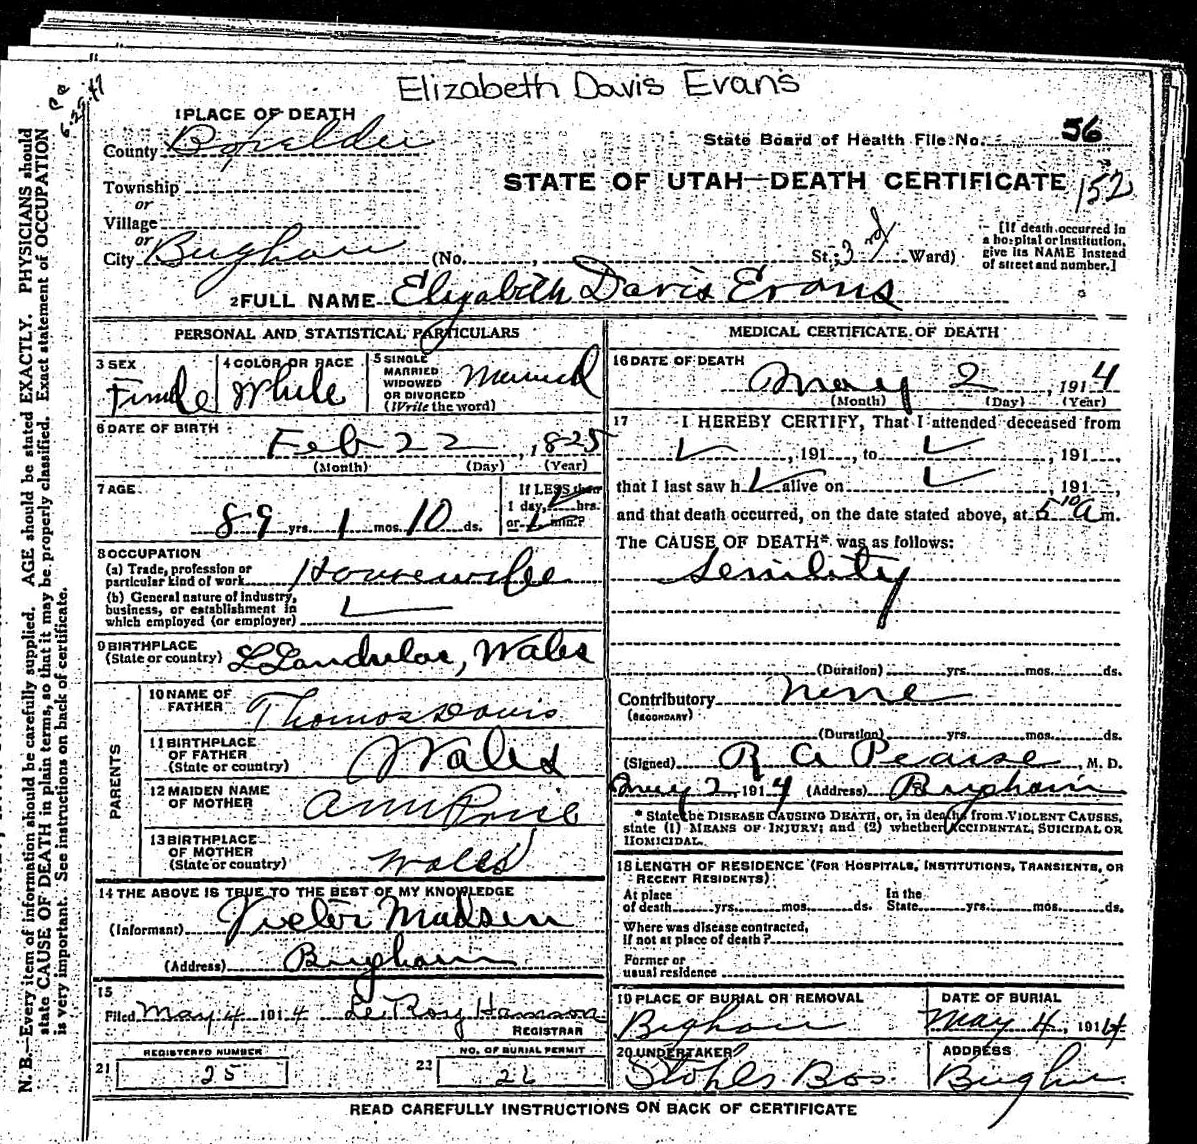 Elizabeth Davis Evans
1 PLACE OF DEATH
County Boxelder
State Board of Health File No. 56
Township
STATE OF UTAH—DEATH CERTIFICATE 152
or
Village
or
City Brigham (No. , St.; 3rd Ward)
[If death occurred in a hospital or institution, give its NAME instead of street and number.]
2 FULL NAME Elizabeth Davis Evans
PERSONAL AND STATISTICAL PARTICULARS
3 SEX Female
4 COLOR OR RACE White
5 SINGLE MARRIED WIDOWED OR DIVORCED (Write the word) Married
6 DATE OF BIRTH Feb 22, 1825
(Month) (Day) (Year)
7 AGE 89 yrs. 1 mos. 10 ds.
If LESS than 1 day, hrs. or min.?
8 OCCUPATION
(a) Trade, profession or particular kind of work Housewife
(b) General nature of industry, business, or establishment in which employed (or employer)
9 BIRTHPLACE (State or country) Wales
PARENTS
10 NAME OF FATHER Thomas Davis
11 BIRTHPLACE OF FATHER (State or country) Wales
12 MAIDEN NAME OF MOTHER Ann Price
13 BIRTHPLACE OF MOTHER (State or country) Wales
14 THE ABOVE IS TRUE TO THE BEST OF MY KNOWLEDGE
(Informant) Victor Madsen
(Address) Brigham
15
Filed May 4 1914 Le Roy
REGISTRAR
REGISTERED NUMBER
21 25
NO. OF BURIAL PERMIT
22
MEDICAL CERTIFICATE OF DEATH
16 DATE OF DEATH
May 2, 1914
(Month) (Day) (Year)
17 I HEREBY CERTIFY, That I attended deceased from
, 191 , to , 191 ,
that I last saw h alive on , 191 ,
and that death occurred, on the date stated above, at 5 10 a m.
The CAUSE OF DEATH* was as follows:
Senility
(Duration) yrs. mos. ds.
Contributory None
(SECONDARY)
(Duration) yrs. mos. ds.
(Signed) R A Pearse, M. D.
May 2, 1914 (Address) Brigham
* State the DISEASE CAUSING DEATH, or, in deaths from VIOLENT CAUSES,
state (1) MEANS OF INJURY; and (2) whether ACCIDENTAL, SUICIDAL OR
HOMICIDAL.
18 LENGTH OF RESIDENCE (FOR HOSPITALS, INSTITUTIONS, TRANSIENTS, OR
RECENT RESIDENTS)
At place of death yrs. mos. ds. In the State yrs. mos. ds.
Where was disease contracted,
if not at place of death?
Former or
usual residence
19 PLACE OF BURIAL OR REMOVAL DATE OF BURIAL
Brigham May 4, 1914
20 UNDERTAKER ADDRESS
Stohls Bros Brigham
READ CAREFULLY INSTRUCTIONS ON BACK OF CERTIFICATE
N. B.—Every item of information should be carefully supplied. AGE should be stated EXACTLY. PHYSICIANS should
state CAUSE OF DEATH in plain terms, so that it may be properly classified. Exact statement of OCCUPATION
is very important. See instructions on back of certificate.